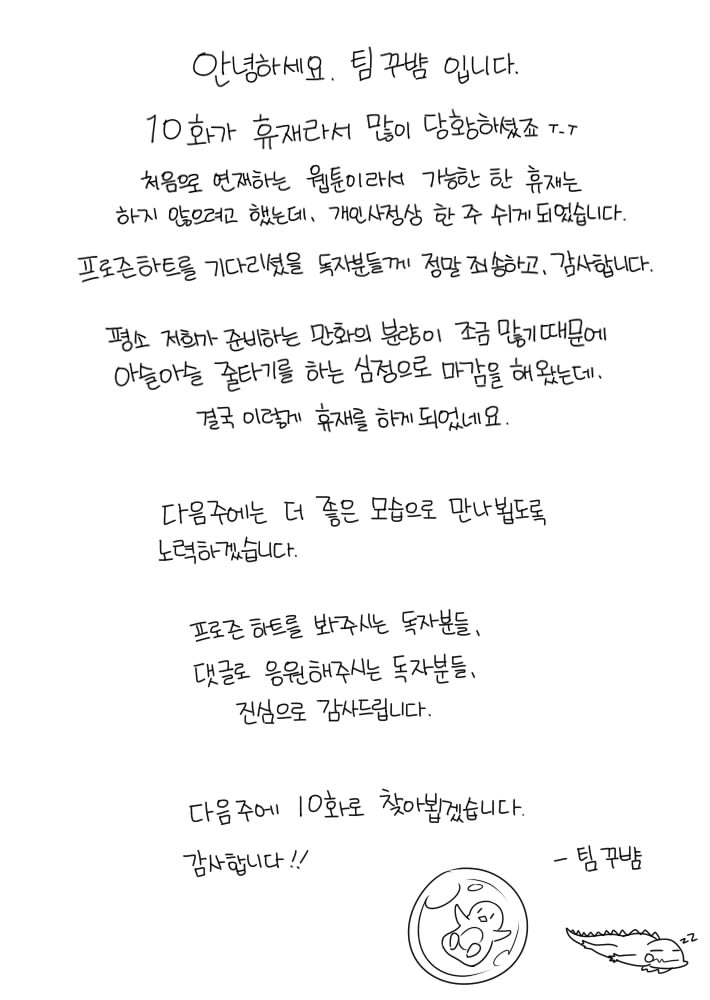 안녕하세요. 팀 꾸뱜 입니다.
10화가 휴재라서 많이 당황하셨죠 T-T
처음으로 연재하는 웹툰이라서 가능한 한 휴재는
하지 않으려고 했는데, 개인사정상 한 주 쉬게 되었습니다.
프로즌하트를 기다리셨을 독자분들께 정말 죄송하고, 감사합니다.
평소 저희가 준비하는 만화의 분량이 조금 많기 때문에
아슬아슬 줄타기를 하는 심정으로 마감을 해 왔는데,
결국 이렇게 휴재를 하게 되었네요.
다음주에는 더 좋은 모습으로 만나뵙도록
노력하겠습니다.
프로즌 하트를 봐주시는 독자분들,
댓글로 응원해주시는 독자분들,
진심으로 감사드립니다.
다음주에 10화로 찾아뵙겠습니다.
감사합니다!!
- 팀 꾸뱜
zz